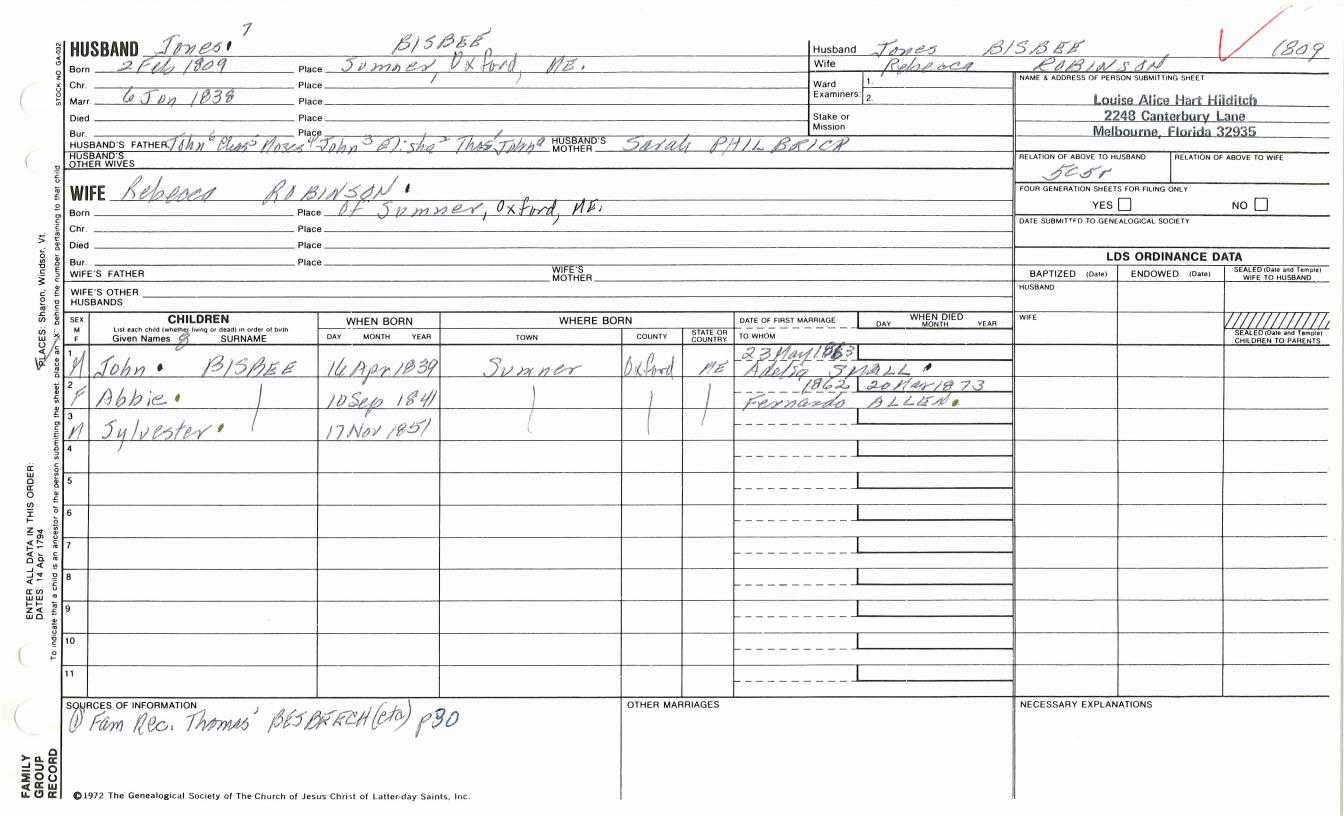 7
HUSBAND Jones BISBEE
Born 2 Feb 1809 Place Sumner, Oxford, ME.
Chr. Place
Marr. 6 Jan 1838 Place
Died Place
Bur. Place
HUSBAND'S FATHER John⁶ Elias⁵ Moses⁴ John³ Elisha² Thos¹ John⁰ HUSBAND'S MOTHER Sarah PHILBRICK
HUSBAND'S OTHER WIVES
WIFE Rebecca ROBINSON
Born Place Of Sumner, Oxford, ME.
Chr. Place
Died Place
Bur. Place
WIFE'S FATHER WIFE'S MOTHER
WIFE'S OTHER HUSBANDS
Husband Jones BISBEE 1809
Wife Rebecca ROBINSON
Ward Examiners: 1. 2.
Stake or Mission
NAME & ADDRESS OF PERSON SUBMITTING SHEET
Louise Alice Hart Hilditch
2248 Canterbury Lane
Melbourne, Florida 32935
RELATION OF ABOVE TO HUSBAND RELATION OF ABOVE TO WIFE
5C5r
FOUR GENERATION SHEETS FOR FILING ONLY
YES NO
DATE SUBMITTED TO GENEALOGICAL SOCIETY
LDS ORDINANCE DATA
BAPTIZED (Date) ENDOWED (Date) SEALED (Date and Temple) WIFE TO HUSBAND
HUSBAND
WIFE
SEALED (Date and Temple) CHILDREN TO PARENTS
SEX M F
CHILDREN
List each child (whether living or dead) in order of birth
Given Names 8 SURNAME
WHEN BORN
DAY MONTH YEAR
WHERE BORN
TOWN COUNTY STATE OR COUNTRY
DATE OF FIRST MARRIAGE
TO WHOM
WHEN DIED
DAY MONTH YEAR
1 M John BISBEE 16 Apr 1839 Sumner Oxford ME 23 May 1863
Adelia SMALL
2 F Abbie 10 Sep 1841 1862 20 Mar 1873
Fernando ALLEN
3 M Sylvester 17 Nov 1851
4
5
6
7
8
9
10
11
SOURCES OF INFORMATION
① Fam Rec. Thomas¹ BESBEECH (etc) p30
OTHER MARRIAGES
NECESSARY EXPLANATIONS
©1972 The Genealogical Society of The Church of Jesus Christ of Latter-day Saints, Inc.
STOCK NO. GA-032
To indicate that a child is an ancestor of the person submitting the sheet, place an "X" behind the number pertaining to that child
ENTER ALL DATA IN THIS ORDER:
DATES: 14 Apr 1794
PLACES: Sharon, Windsor, Vt.
FAMILY GROUP RECORD